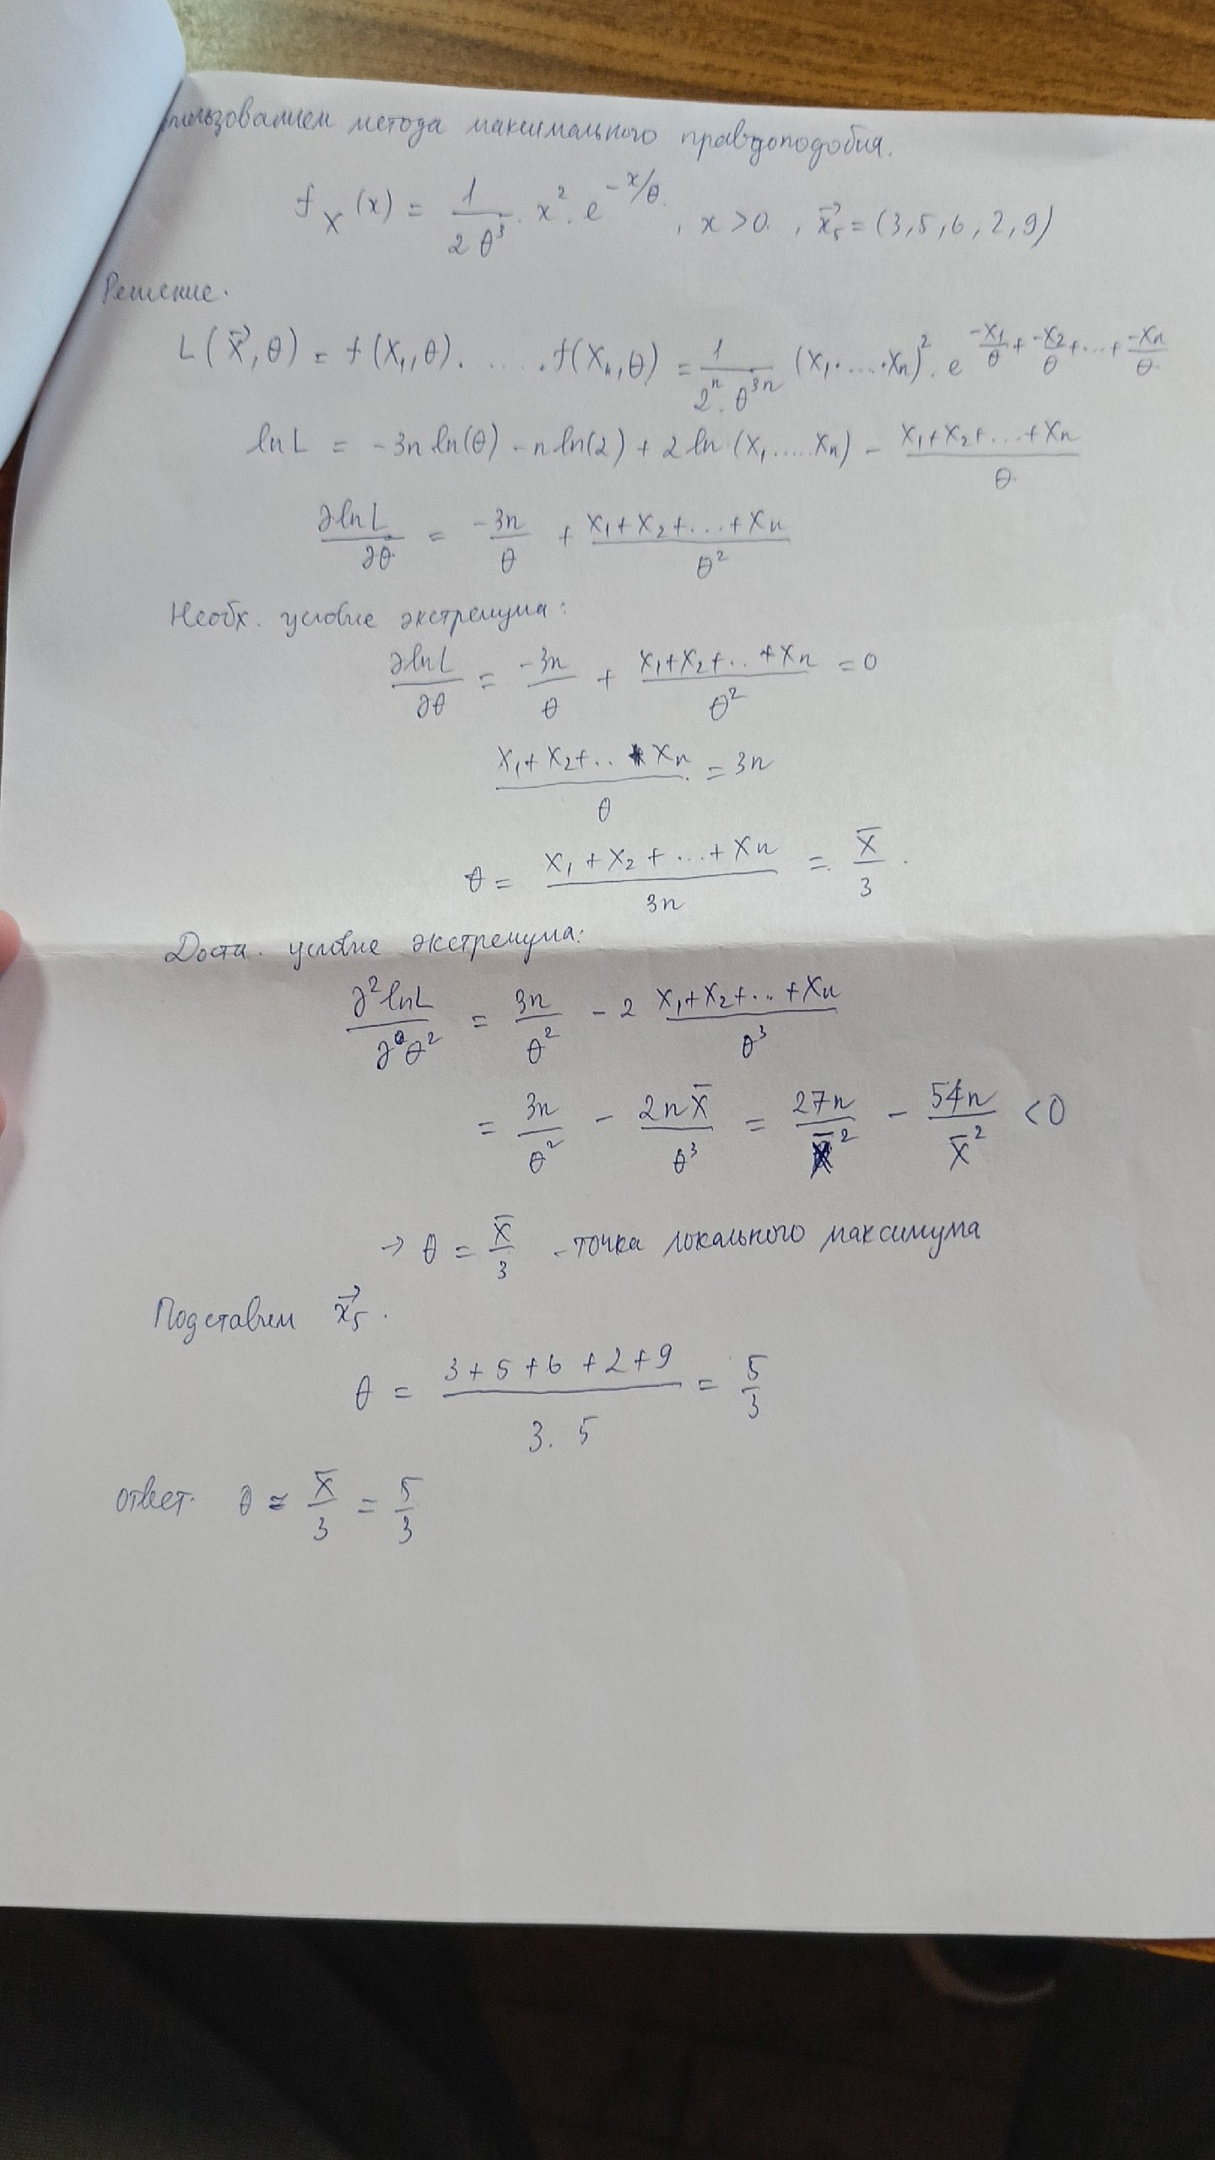 пользованием метода максимального правдоподобия.
f_X (x) = 1/(2 θ³) · x² · e^(-x/θ) , x > 0 , x⃗₅ = (3, 5, 6, 2, 9)
Решение.
L(X⃗, θ) = f(X₁, θ) · ... · f(Xₙ, θ) = 1/(2ⁿ · θ³ⁿ) (X₁ · ... · Xₙ)² · e^(-X₁/θ + -X₂/θ + ... + -Xₙ/θ)
ln L = -3n ln(θ) - n ln(2) + 2 ln (X₁ ..... Xₙ) - (X₁ + X₂ + ... + Xₙ)/θ
∂lnL/∂θ = -3n/θ + (X₁ + X₂ + ... + Xₙ)/θ²
Необх. условие экстремума:
∂lnL/∂θ = -3n/θ + (X₁ + X₂ + .. + Xₙ)/θ² = 0
(X₁ + X₂ + .. + Xₙ)/θ = 3n
θ = (X₁ + X₂ + ... + Xₙ)/3n = X̄/3 .
Доста. условие экстремума:
∂²lnL/∂θ² = 3n/θ² - 2 (X₁ + X₂ + ... + Xₙ)/θ³
= 3n/θ² - 2nX̄/θ³ = 27n/X̄² - 54n/X̄² < 0
→ θ = X̄/3 - точка локального максимума
Подставим x⃗₅ .
θ = (3 + 5 + 6 + 2 + 9)/(3 · 5) = 5/3
ответ. θ = X̄/3 = 5/3